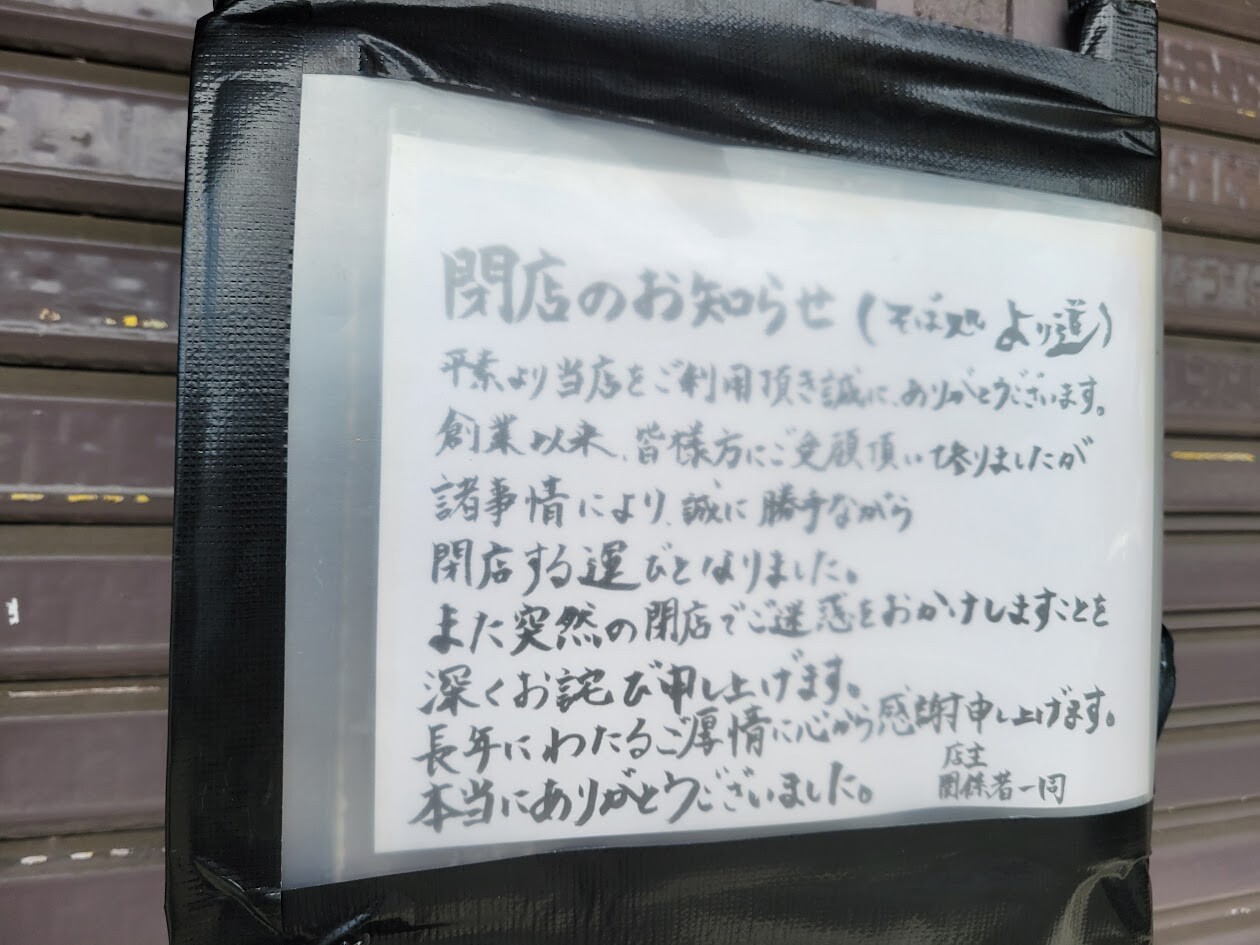 閉店のお知らせ(そば処 より道)
平素より当店をご利用頂き誠に、ありがとうございます。
創業以来、皆様方にご愛顧頂いて参りましたが
諸事情により、誠に勝手ながら
閉店する運びとなりました。
また突然の閉店でご迷惑をおかけしますことを
深くお詫び申し上げます。
長年にわたるご厚情に心から感謝申し上げます。
本当にありがとうございました。
店主
関係者一同